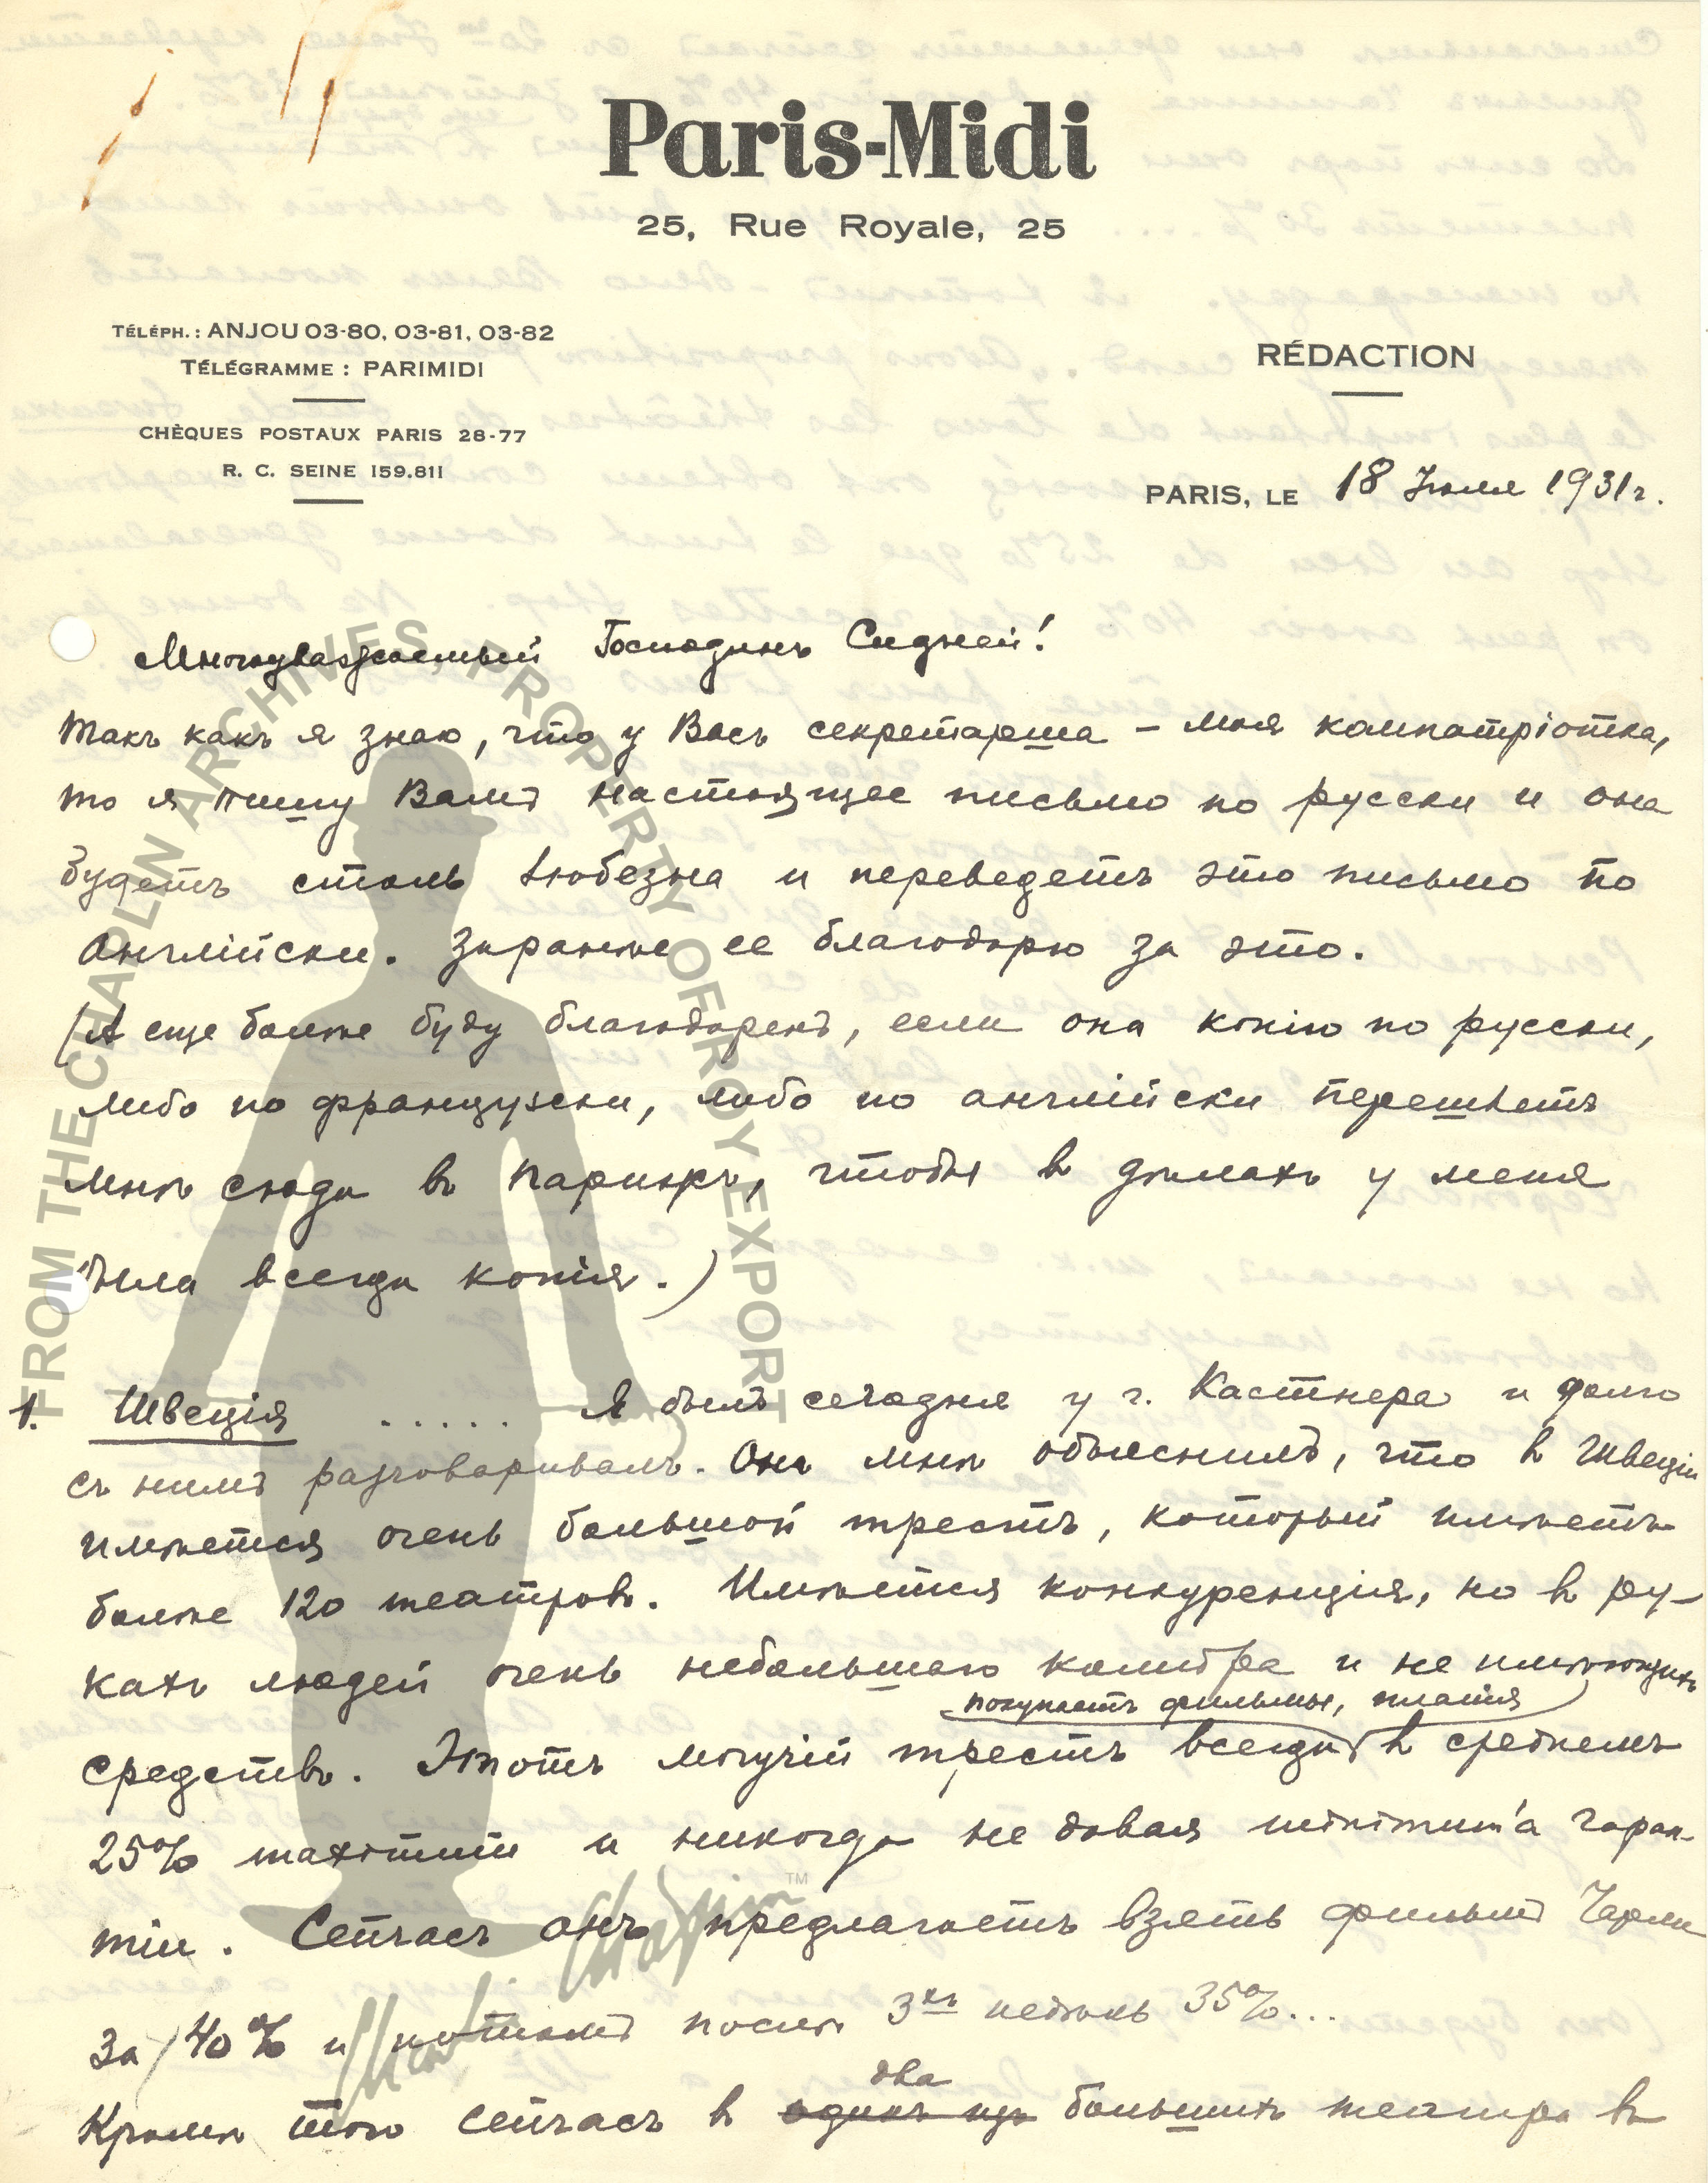 Paris-Midi
25, Rue Royale, 25
TÉLÉPH. : ANJOU 03-80, 03-81, 03-82
TÉLÉGRAMME : PARIMIDI
CHÈQUES POSTAUX PARIS 28-77
R. C. SEINE 159.811
RÉDACTION
PARIS, LE 18 Iюля 1931 г.
Многоуважаемый Господинъ Сидней!
Такъ какъ я знаю, что у Васъ секретарша – моя компатрiотка,
то я пишу Вамъ настоящее письмо по русски и она
будетъ столь любезна и переведетъ это письмо по
англiйски. Заранѣе ее благодарю за это.
(А еще болѣе буду благодаренъ, если она копiю по русски,
либо по французски, либо по англiйски перешлетъ
мнѣ сюда въ Парижъ, чтобы въ дѣлахъ у меня
была всегда копiя.)
1. Швецiя ..... Я былъ сегодня у г. Кастнера и долго
съ нимъ разговаривалъ. Онъ мнѣ объяснилъ, что въ Швецiи
имѣется очень большой трестъ, который имѣетъ
болѣе 120 театровъ. Имѣется конкуренцiя, но въ ру-
кахъ людей очень небольшого калибра и не имѣющихъ
покупаетъ фильмы, платя
средствъ. Этотъ могучiй трестъ всегда въ среднемъ
25% maximum и никогда не давая minimum'а гаран-
тiи. Сейчасъ онъ предлагаетъ взять фильмъ Чарли
за 40% и потомъ послѣ 3хъ недѣль 35%...
два
Кромѣ того сейчасъ въ одинъ изъ большихъ театра въ
FROM THE CHAPLIN ARCHIVES, PROPERTY OF ROY EXPORT
Charlie Chaplin™